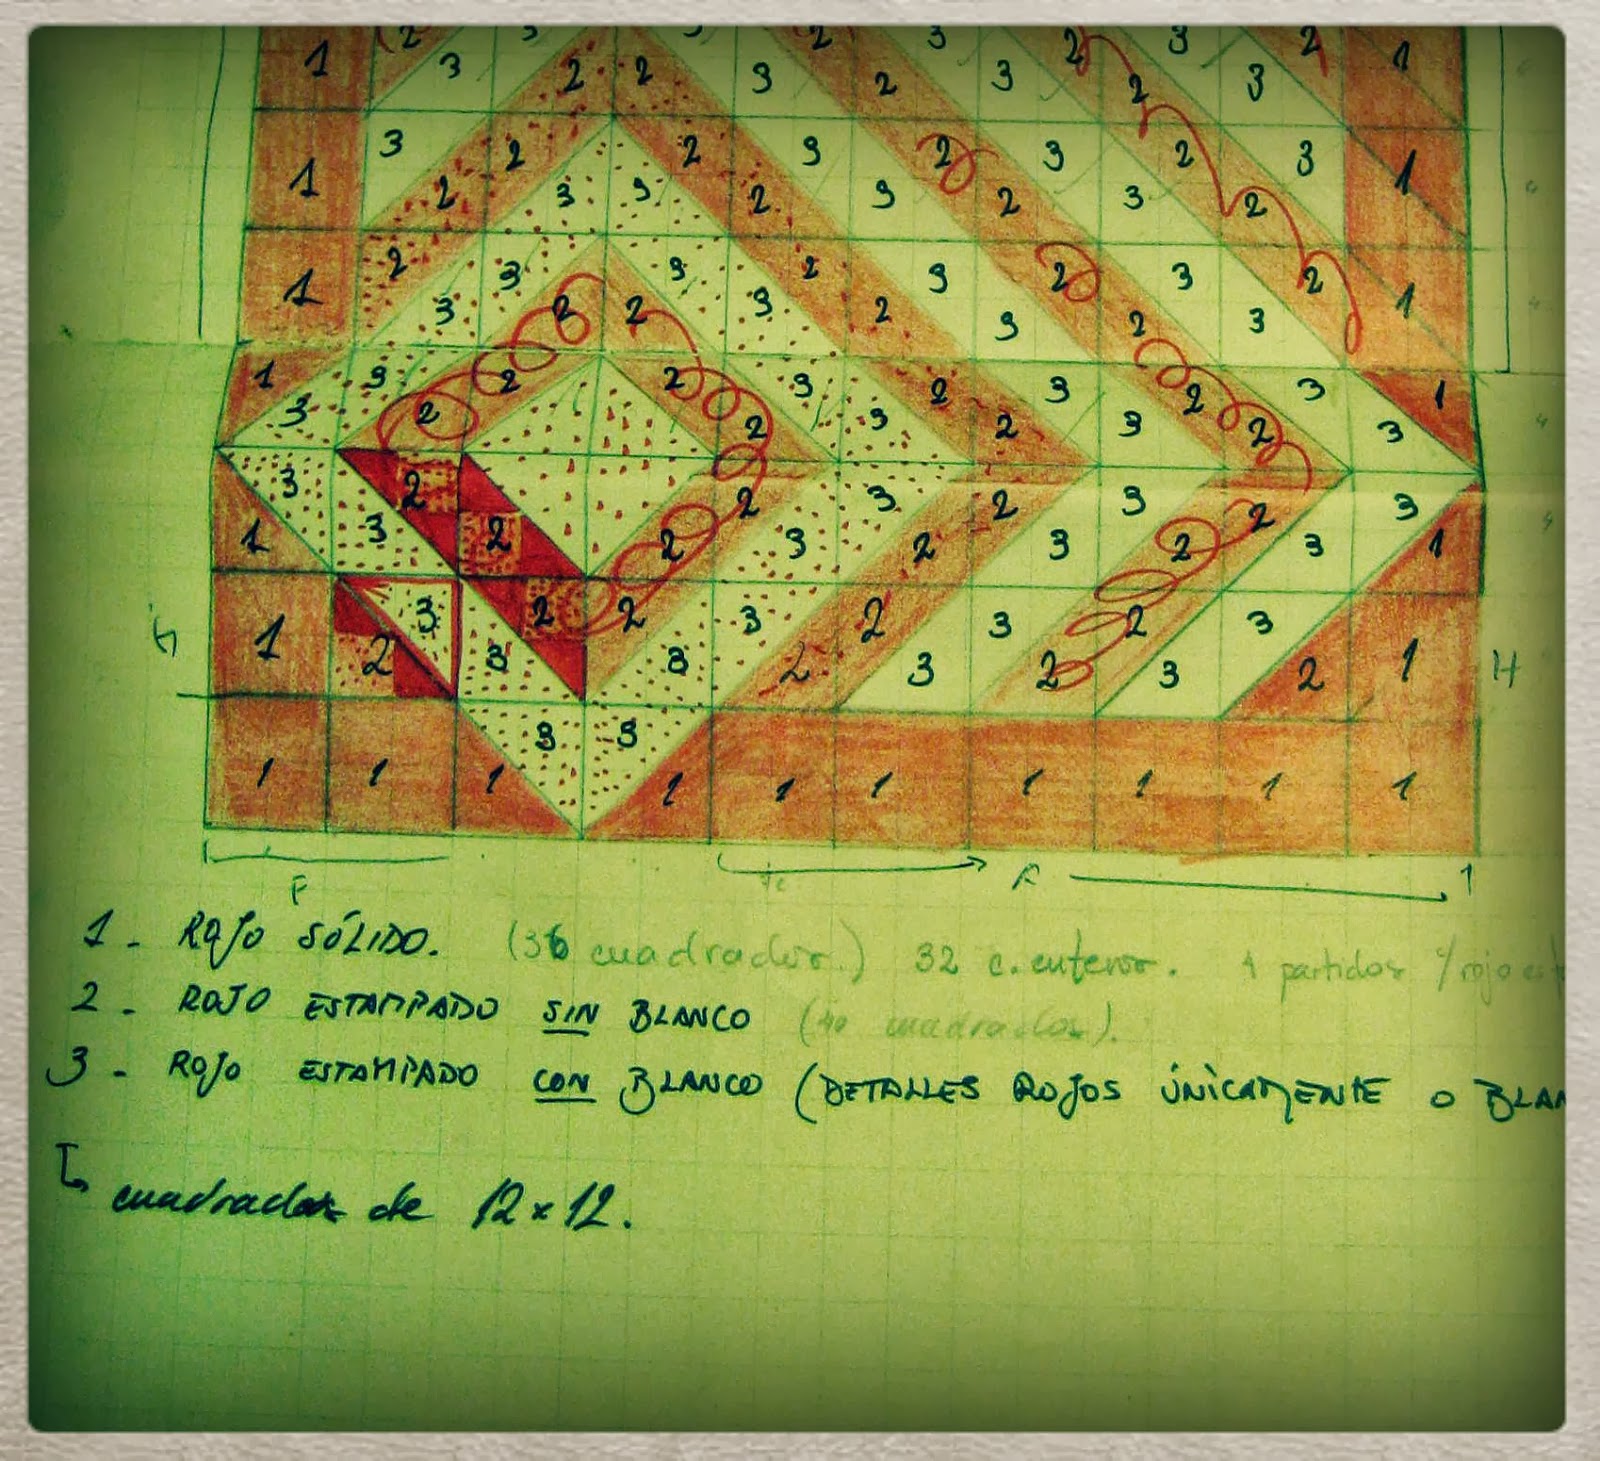 1 2 3 2 2 3 2 3 2 3 2 3 2 1
3 2 3 2 3 2 3 1
1 3 2 2 3 2 3 2 3 1
2 3 3 2 3 2 3 2
1 2 3 3 2 3 2 3 2 1
3 2 2 2 3 2 3
1 3 2 2 3 2 3 2 3 1
3 2 2 3 2 3 2 3
3 2 2 3 2 3 2 3
1 3 2 2 3 2 3 2 3 1
1 2 3 3 2 2 3 2 3 2 3 2 3 2 1
H
3 3
1 1 1 1 1 1 1 1 1 1
F
1
1 - ROJO SÓLIDO. (36 cuadrados.) 32 c. enteros. 4 partidos c/rojo est
2 - ROJO ESTAMPADO SIN BLANCO (40 cuadrados).
3 - ROJO ESTAMPADO CON BLANCO (DETALLES ROJOS ÚNICAMENTE O BLAN
cuadrados de 12 x 12.